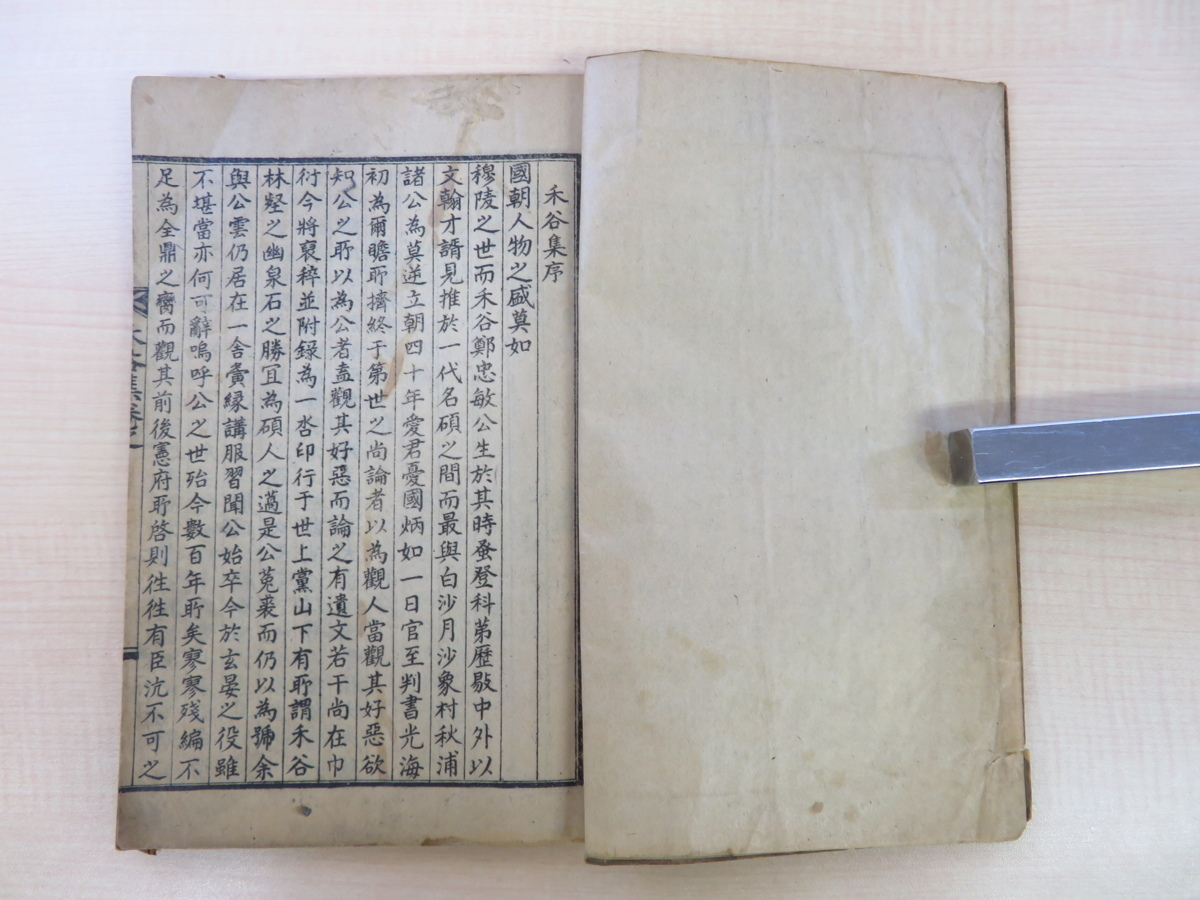 禾谷集序
國朝人物之盛莫如
穆陵之世而禾谷鄭忠敏公生於其時蚤登科第歷敭中外以
文翰才諝見推於一代名碩之間而最與白沙月沙象村秋浦
諸公為莫逆立朝四十年愛君憂國炳如一日官至判書光海
初為爾瞻所擠終于第世之尚論者以為觀人當觀其好惡欲
知公之所以為公者盍觀其好惡而論之有遺文若干尚在巾
衍今將裒稡並附錄為一沓印行于世上黨山下有所謂禾谷
林壑之幽泉石之勝冝為碩人之薖是公菟裘而仍以為號余
與公雲仍居在一舍夤緣講服習聞公始卒今於玄晏之役雖
不堪當亦何可辭嗚呼公之世殆今數百年所矣寥寥殘編不
足為全鼎之臠而觀其前後憲府所啓則徃徃有臣沆不可之
禾谷集卷之